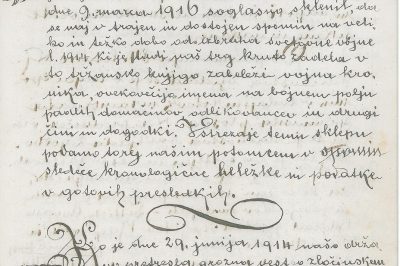 dne 9. marca 1916 soglasno sklenil, da
se naj v trajen in dostojen spomin na veli-
ko in težko dobo od izbruha svetovne vojne
l. 1914, ki je tudi naš trg kruto zadela v
to tržansko knjigo, zabeleži vojna kro-
nika, ovekovečijo imena na bojnem polju
padlih domačinov, odlikovancev in drugi
čini in dogodki. Vstrezaje temu sklepu
podamo torej našim potomcem v spomin
sledeče kronologične beležke in podatke
v gotovih presledkih.
Ko je dne 29. junija 1914 našo drža
pretresla grozna vest o zločinskem